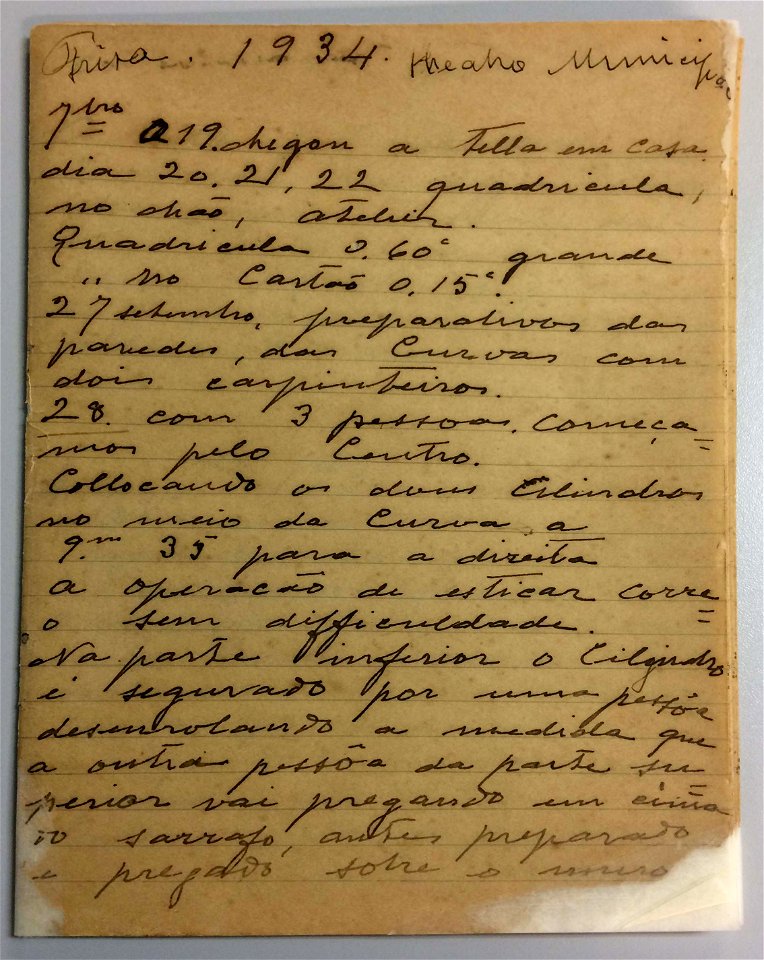 Friza. 1934. Theatro Municipal
7bro a 19. chegou a tella em casa.
dia 20. 21, 22 quadricula,
no chão, atelier.
Quadricula 0.60c grande
" no Cartão 0.15c.
27 setembro, preparativos das
paredes, das Curvas com
dois carpinteiros.
28. com 3 pessoas. começa=
mos pelo Centro.
Collocando os dous Cilindros
no meio da Curva a
9.m 35 para a direita
a operacão de esticar corre=
o sem difficuldade.
Na parte inferior o Cilindro
é segurado por uma pessôa
desenrolando a medida que
a outra pessôa da parte su
perior vai pregando em cima
do sarrafo, antes preparado
e pregado sobre o muro